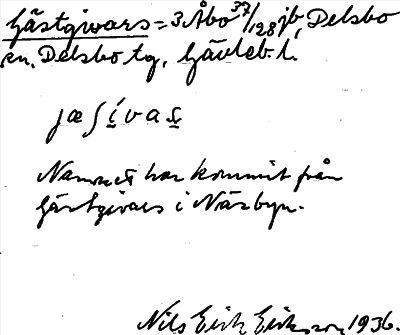 Gästgivars = 3 Åbo 37/128 jb, Delsbo
sn, Delsbo tg, Gävleb. l.
jæʃívaṣ
Namnet har kommit från
Gästgivars i Näsbyn.
Nils Erik Eriksson 1936.